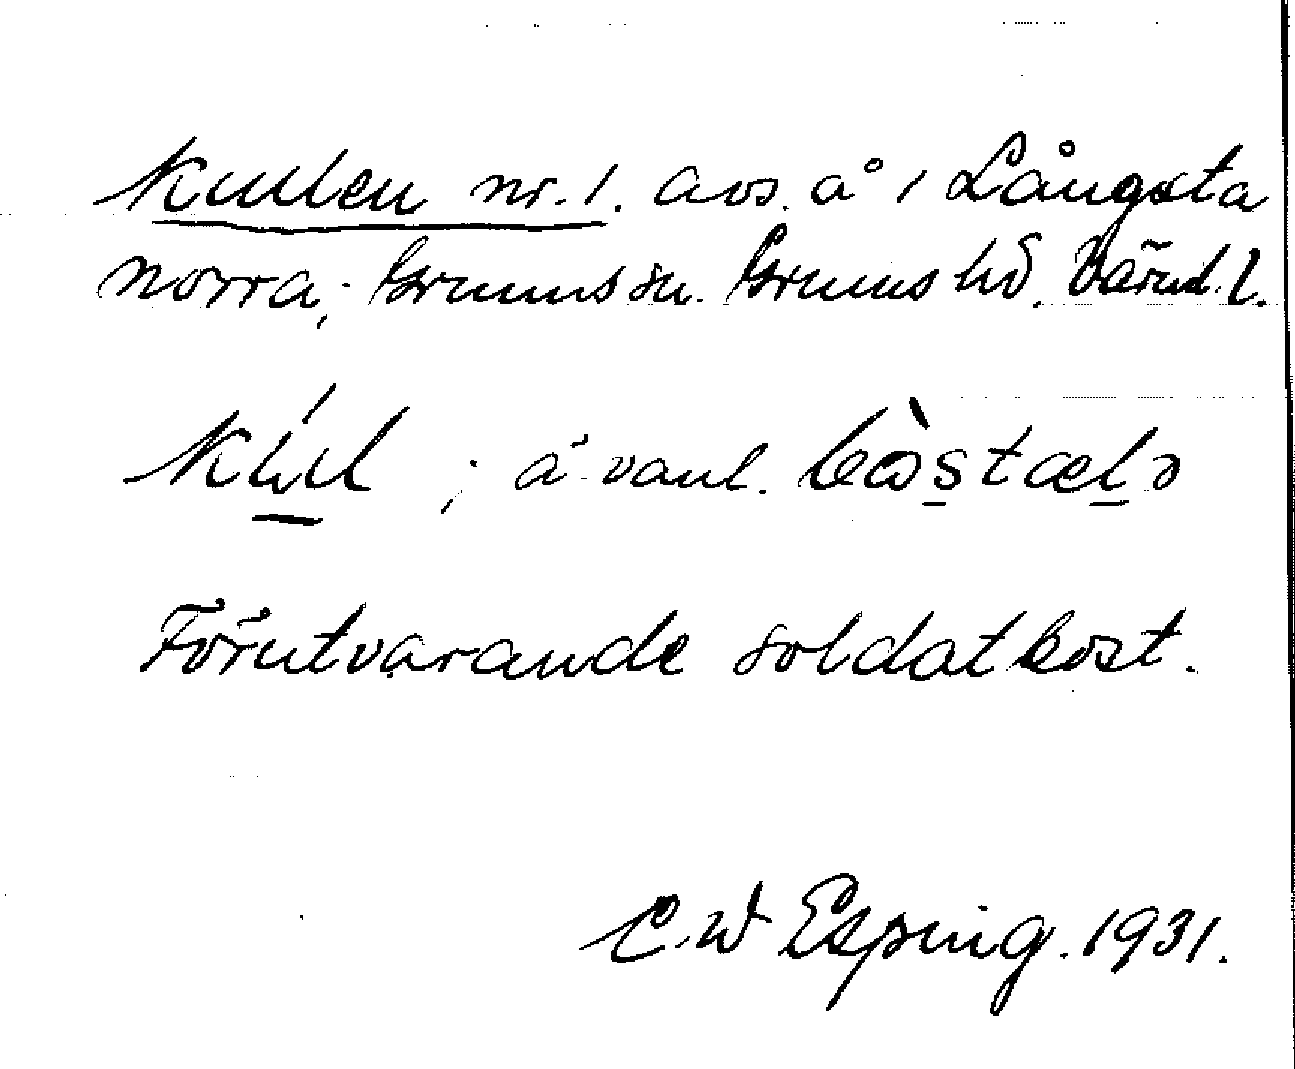 Kullen nr. 1. avs. å i Långsta
norra, Grums sn. Grums hd. Värml. l.
; å vanl. bòstælə
Förutvarande soldatbost.
C. W Esping. 1931.